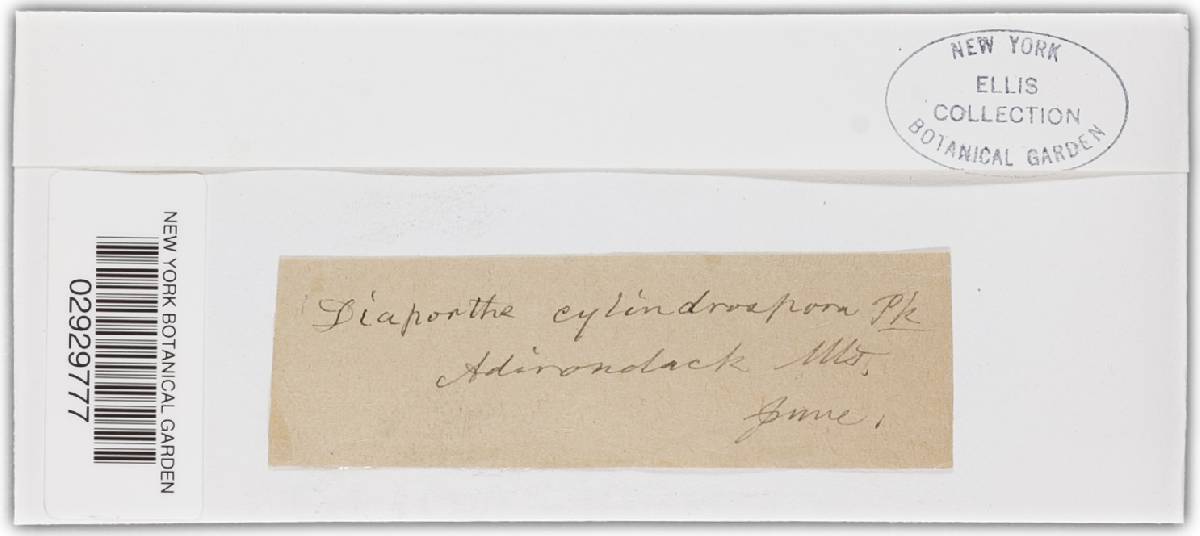 NEW YORK
ELLIS
COLLECTION
BOTANICAL GARDEN
NEW YORK BOTANICAL GARDEN
02929777
Diaporthe cylindrospora Pk
Adirondack Mts.
June.